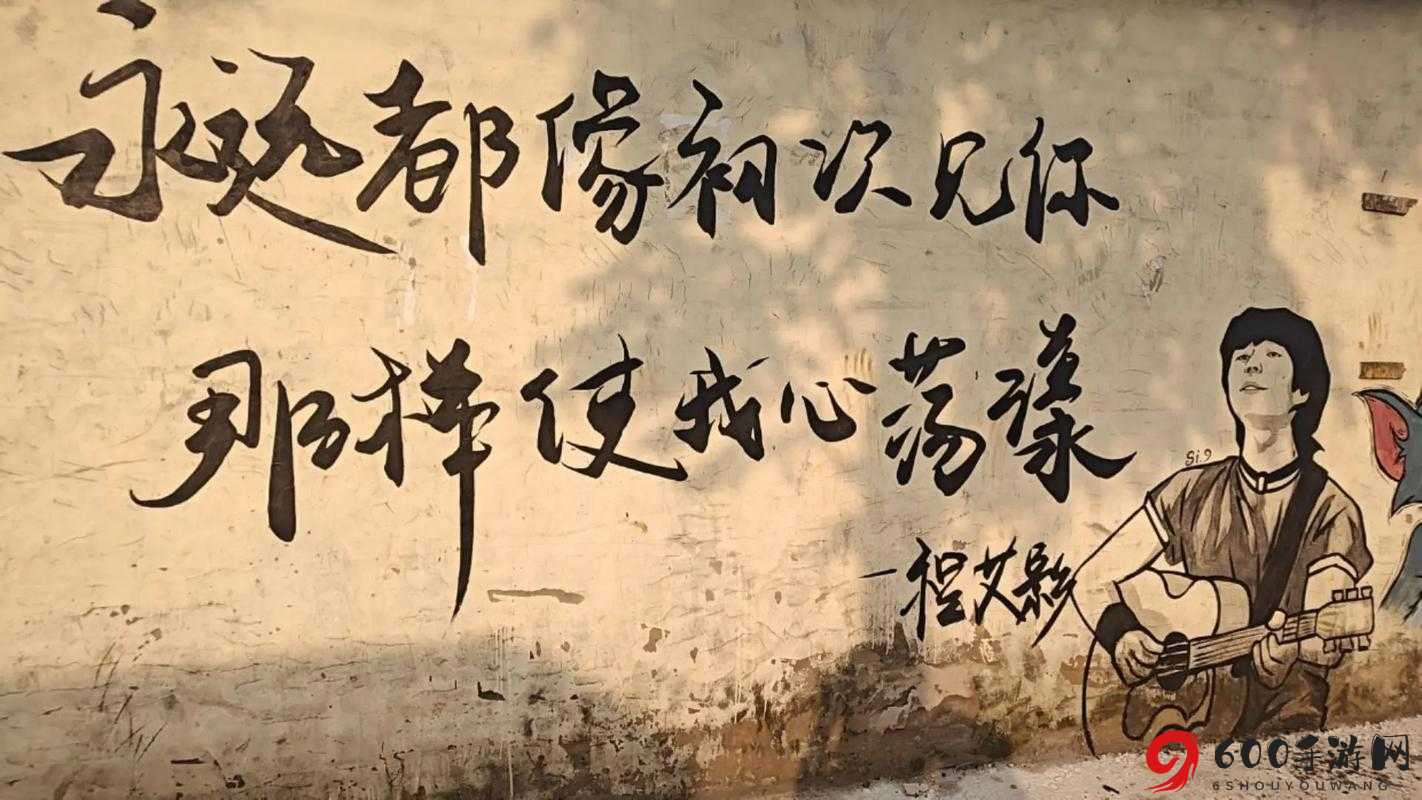 永远都像初次见你
那样使我心荡漾
一程艾影
Si.9
600手游网
6SHOUYOUWANG